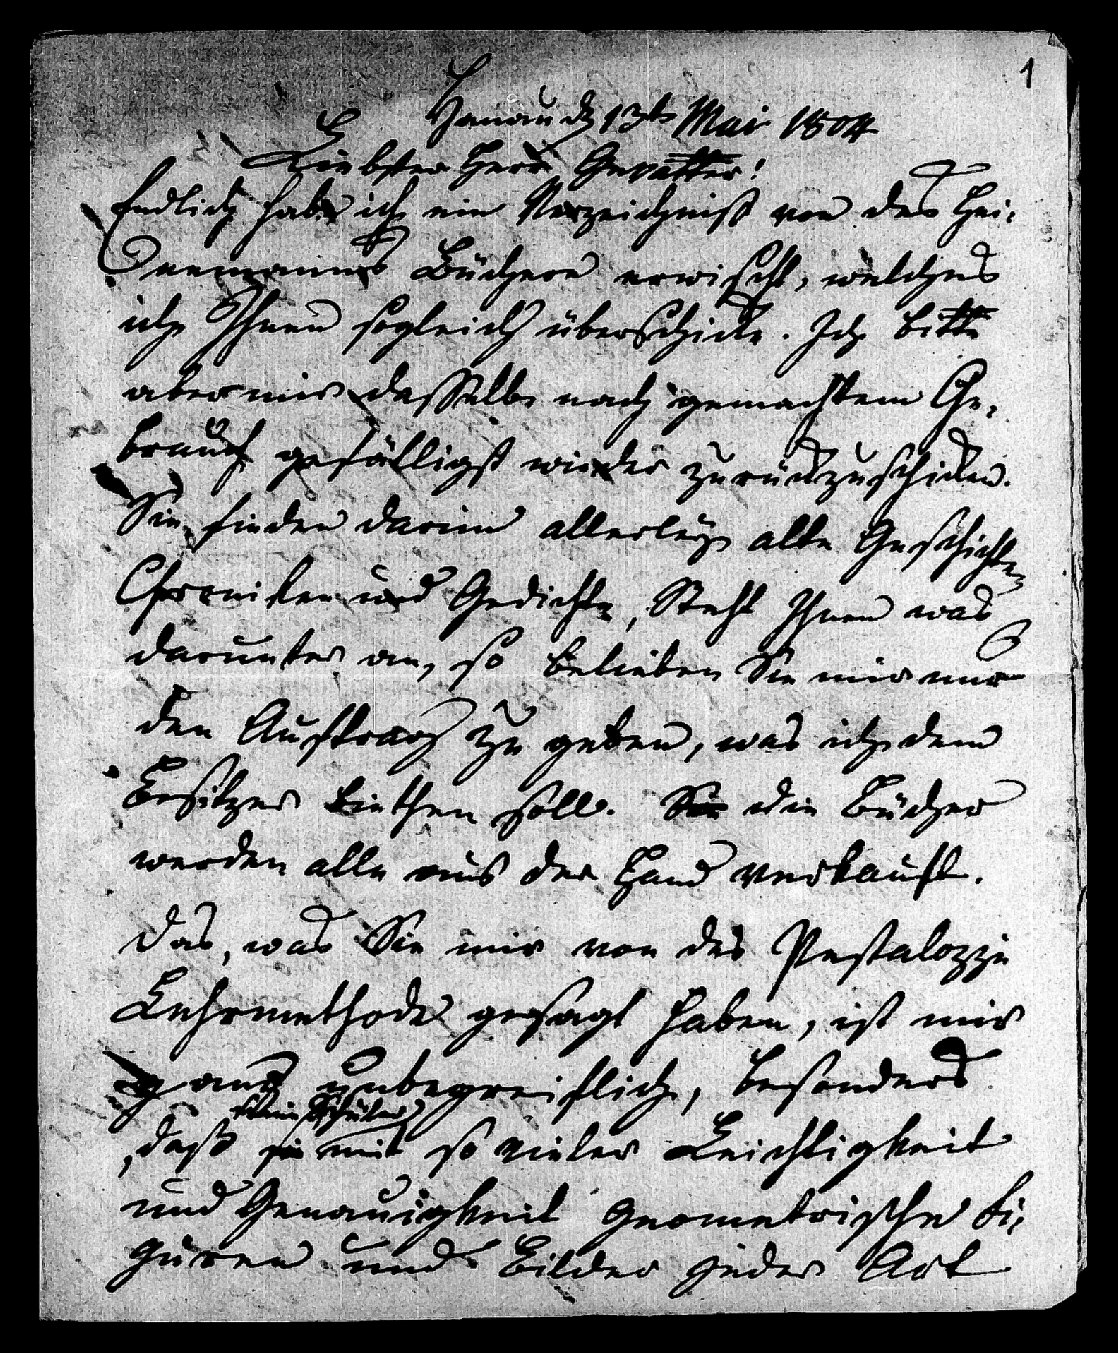 1
Hanau d. 13ts Mai 1804
Liebster Herr Gevatter!
Endlich habe ich ein Verzeichniß von des Hei-
nemanns Büchern erwischt, welches
ich Ihnen sogleich überschicke. Ich bitte
aber mir dasselbe nach gemachtem Ge-
brauch gefälligst wieder zurückzuschicken.
Sie finden darinn allerley alte Geschichten
Chroniken und Gedichte, Steht Ihnen was
darunter an, so belieben Sie mir nur
den Auftrag zu geben, was ich dem
Besitzer biethen soll. die Bücher
werden alle aus der Hand verkauft.
Das, was Sie mir von des Pestalozzi
Lehrmethode gesagt haben, ist mir
ganz unbegreiflich, besonders
seine Schüler
daß sie mit so vieler Leichtigkeit
und Genauigkeit geometrische Fi-
guren und Bilder jeder Art